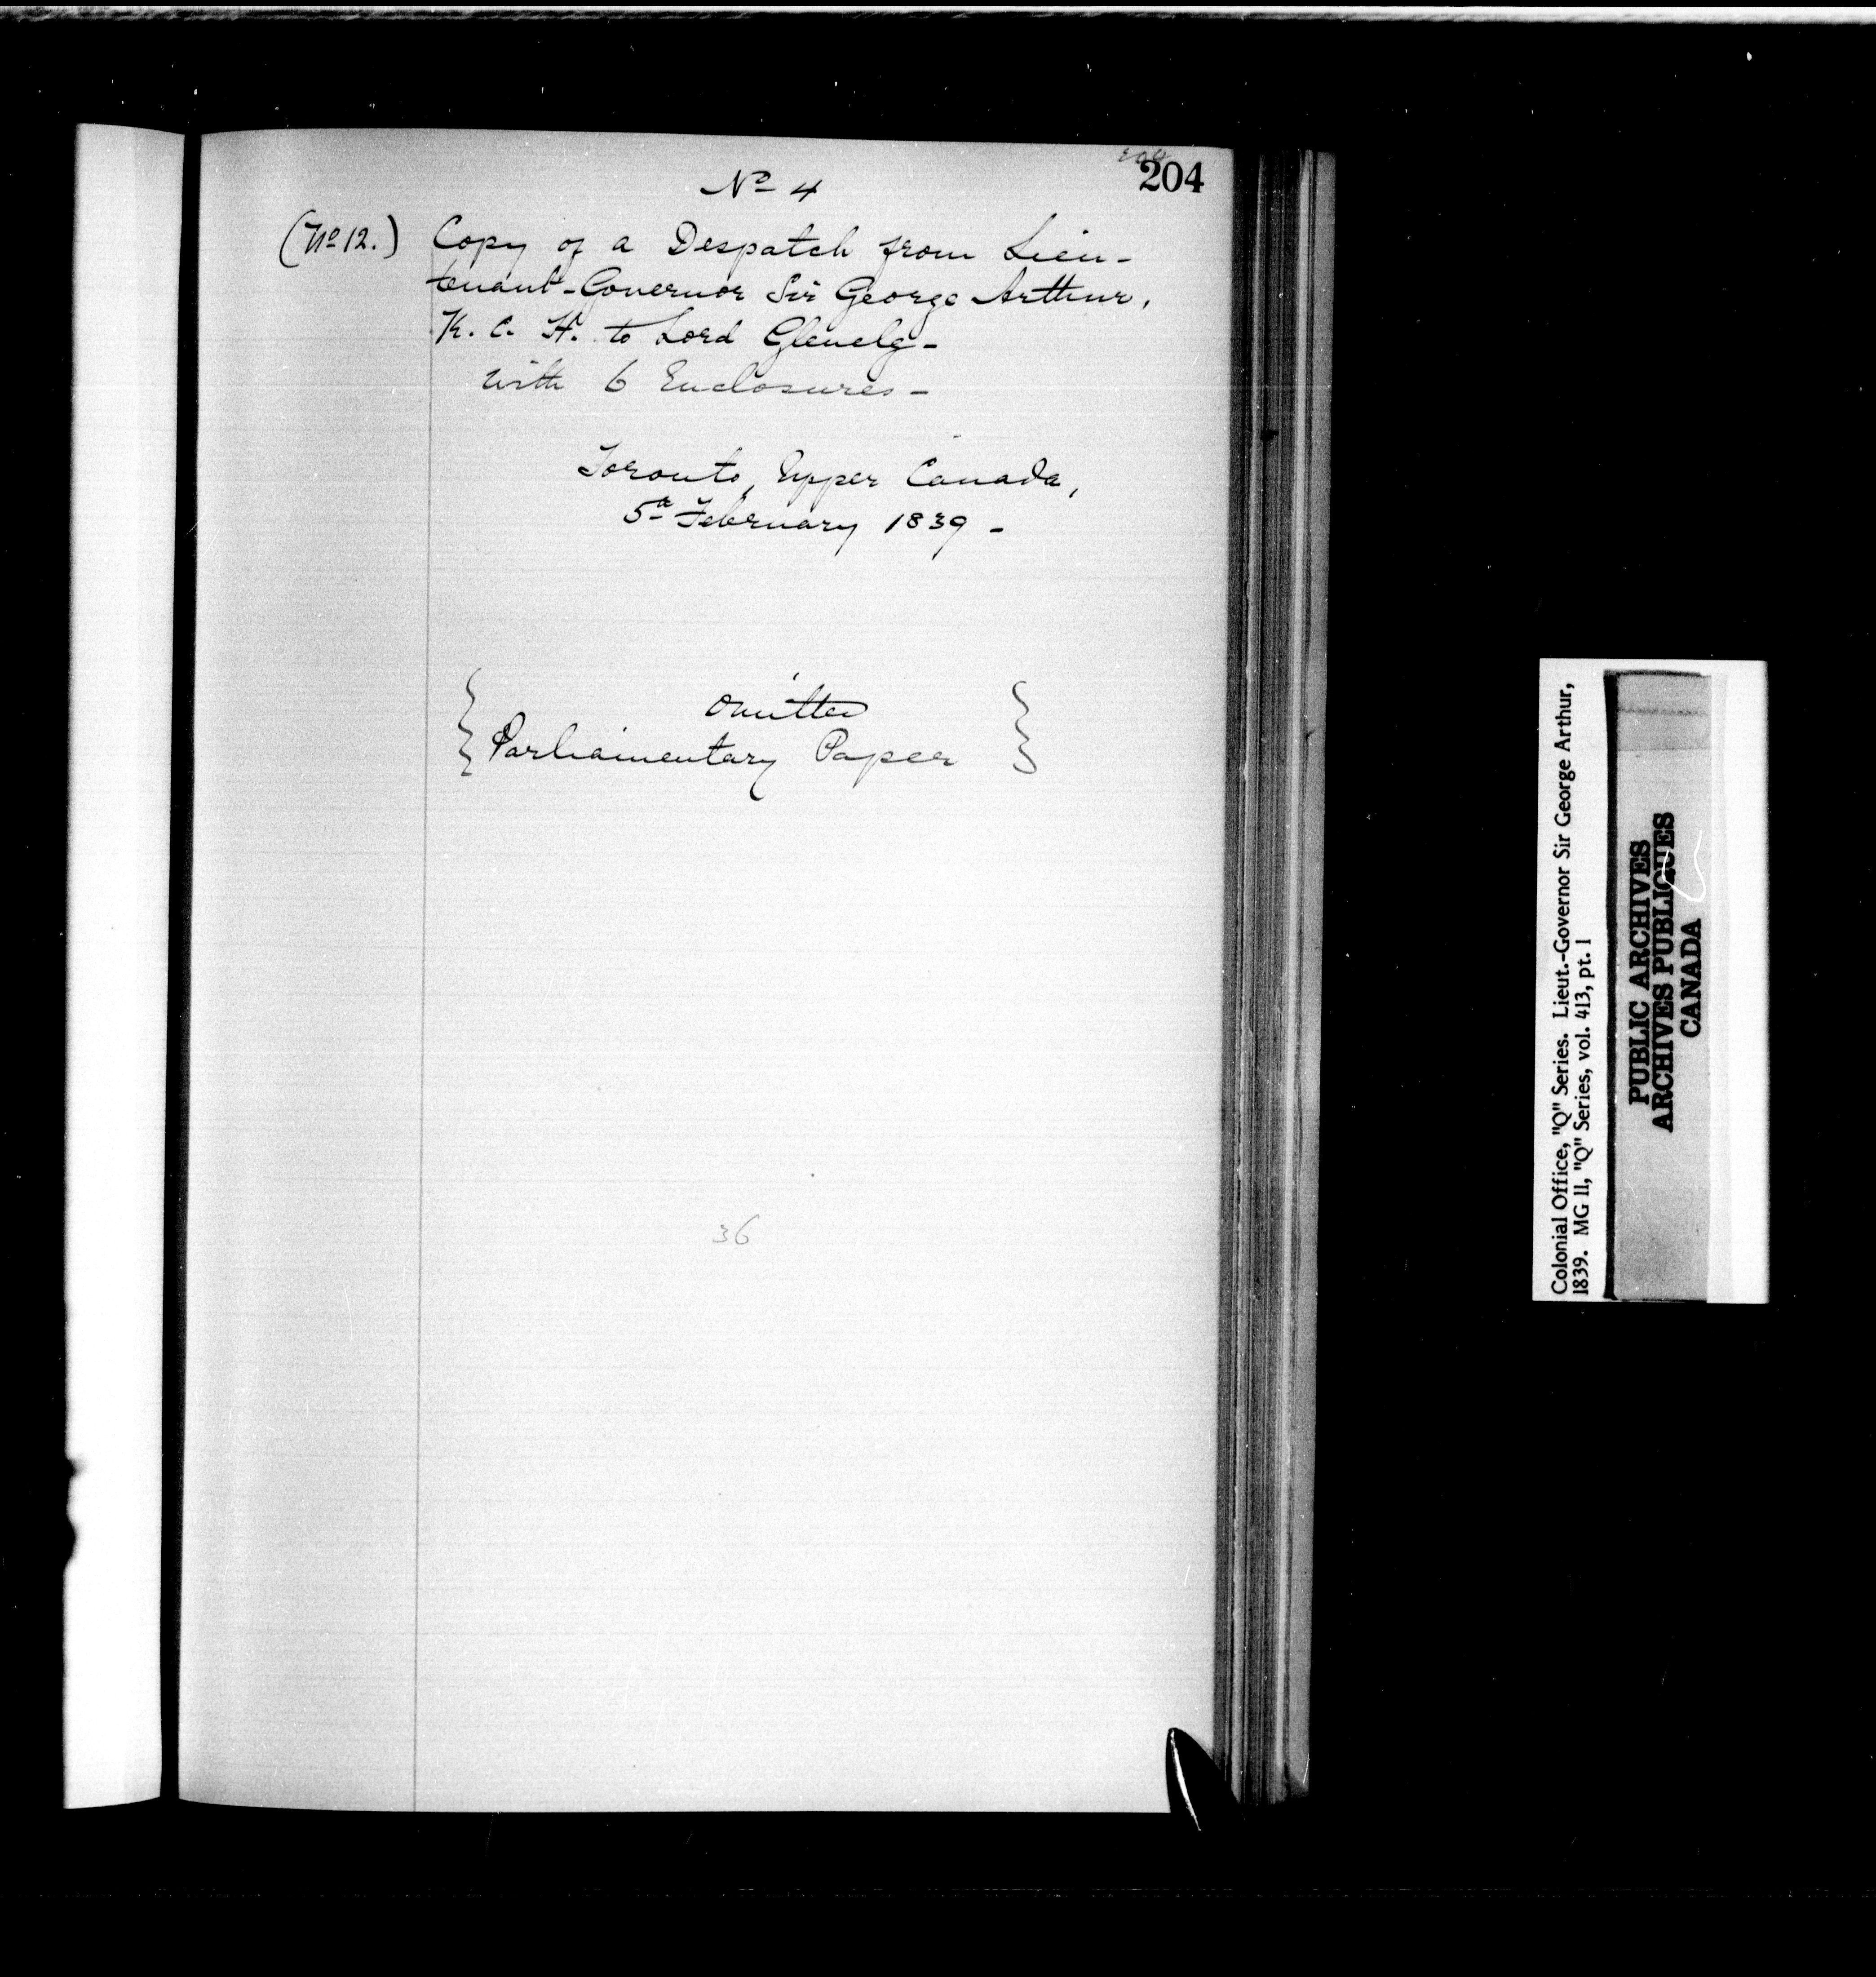 204
No 4
(No 12.) Copy of a Despatch from Lieu-
tenant-Governor Sir George Arthur,
K. C. H. to Lord Glenelg -
with 6 Enclosures -
Toronto, Upper Canada,
5th February 1839 -
Omitted
Parliamentary Paper
36
Colonial Office, "Q" Series. Lieut.-Governor Sir George Arthur,
1839. MG 11, "Q" Series, vol. 413, pt. 1
PUBLIC ARCHIVES
ARCHIVES PUBLIQUES
CANADA